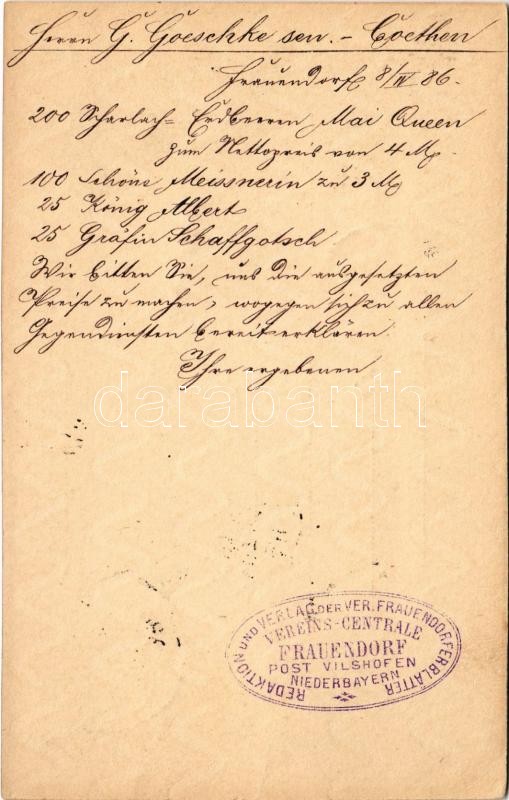 Herrn G. Goeschke sen. – Coethen
Frauendorf 8/IV 86.
200 Scharlach= Erdbeeren Mai Queen
zum Nettopreis von 4 M.
100 Schöne Meissnerin zu 3 M
25 König Albert
25 Gräfin Schaffgotsch.
Wir bitten Sie, uns die ausgesetzten
Preise zu machen, wogegen sich zu allen
Gegendiensten bereit erklären.
Ihre ergebenen
darabanth
REDAKTION UND VERLAG DER VER. FRAUENDORFER BLÄTTER
VEREINS-CENTRALE
FRAUENDORF
POST VILSHOFEN
NIEDERBAYERN